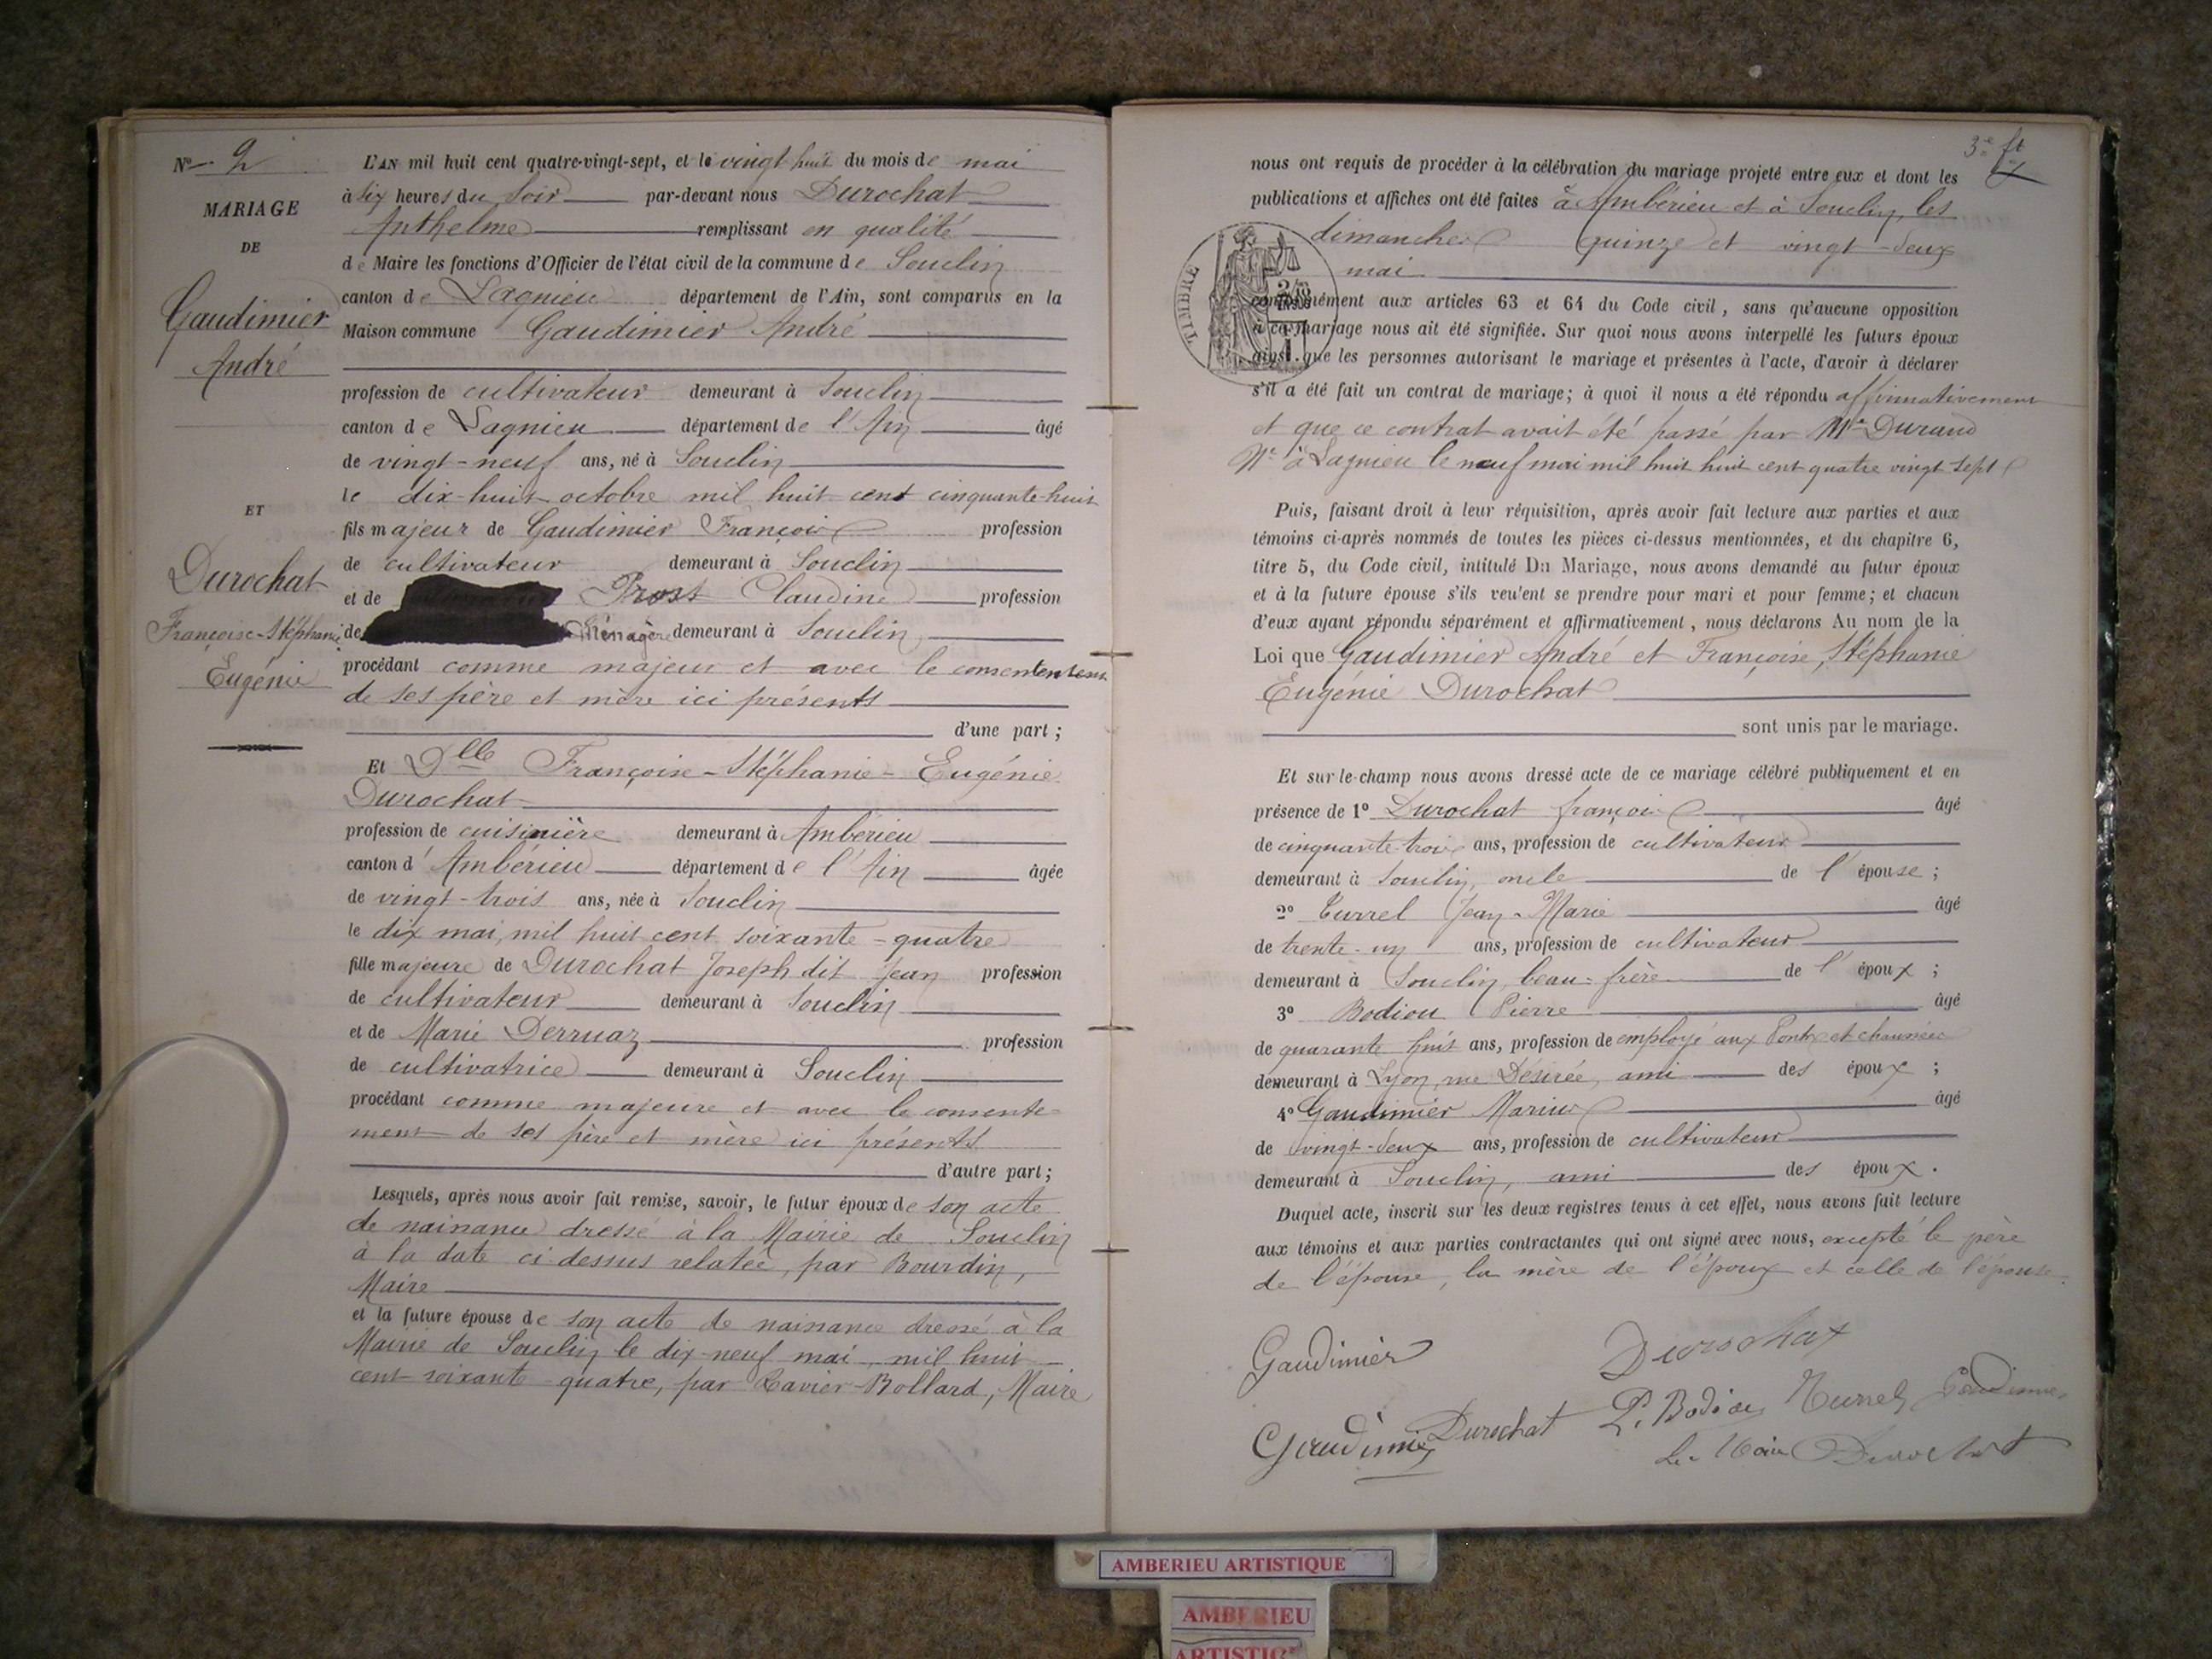 N° 2
MARIAGE
DE
Gaudimier
André
ET
Durochat
Françoise-Stéphanie
Eugénie
L'AN mil huit cent quatre-vingt-sept, et le vingt huit du mois de mai
à six heures du soir par-devant nous Durochat
Anthelme remplissant en qualité
de Maire les fonctions d'Officier de l'état civil de la commune de Souclin
canton de Lagnieu département de l'Ain, sont comparus en la
Maison commune Gaudimier André
profession de cultivateur demeurant à Souclin
canton de Lagnieu département de l'Ain âgé
de vingt-neuf ans, né à Souclin
le dix-huit octobre mil huit cent cinquante-huit
fils majeur de Gaudimier François profession
de cultivateur demeurant à Souclin
et de Prost Claudine profession
de Ménagère demeurant à Souclin
procédant comme majeur et avec le consentement
de ses père et mère ici présents
d'une part ;
Et Dlle Françoise-Stéphanie-Eugénie
Durochat
profession de cuisinière demeurant à Ambérieu
canton d'Ambérieu département de l'Ain âgée
de vingt-trois ans, née à Souclin
le dix mai, mil huit cent soixante-quatre
fille majeure de Durochat Joseph dit Jean profession
de cultivateur demeurant à Souclin
et de Marie Derruaz profession
de cultivatrice demeurant à Souclin
procédant comme majeure et avec le consente-
ment de ses père et mère ici présents
d'autre part ;
Lesquels, après nous avoir fait remise, savoir, le futur époux de son acte
de naissance dressé à la Mairie de Souclin
à la date ci-dessus relatée, par Bourdin,
Maire
et la future épouse de son acte de naissance dressé à la
Mairie de Souclin le dix-neuf mai, mil huit
cent soixante-quatre, par Bollard, Maire
3e ft
nous ont requis de procéder à la célébration du mariage projeté entre eux et dont les
publications et affiches ont été faites à Ambérieu et à Souclin, les
dimanches quinze et vingt-deux
mai
TIMBRE
conformément aux articles 63 et 64 du Code civil, sans qu'aucune opposition
à ce mariage nous ait été signifiée. Sur quoi nous avons interpellé les futurs époux
ainsi que les personnes autorisant le mariage et présentes à l'acte, d'avoir à déclarer
s'il a été fait un contrat de mariage; à quoi il nous a été répondu affirmativement
et que ce contrat avait été passé par Me Durand
Nre à Lagnieu le neuf mai mil huit huit cent quatre vingt sept
Puis, faisant droit à leur réquisition, après avoir fait lecture aux parties et aux
témoins ci-après nommés de toutes les pièces ci-dessus mentionnées, et du chapitre 6,
titre 5, du Code civil, intitulé Du Mariage, nous avons demandé au futur époux
et à la future épouse s'ils veulent se prendre pour mari et pour femme; et chacun
d'eux ayant répondu séparément et affirmativement, nous déclarons Au nom de la
Loi que Gaudimier André et Françoise, Stéphanie
Eugénie Durochat
sont unis par le mariage.
Et sur-le-champ nous avons dressé acte de ce mariage célébré publiquement et en
présence de 1° Durochat françois âgé
de cinquante-trois ans, profession de cultivateur
demeurant à Souclin, oncle de l'épouse ;
2° Turrel Jean-Marie âgé
de trente-un ans, profession de cultivateur
demeurant à Souclin, beau-frère de l'époux ;
3° Bodiou Pierre âgé
de quarante huit ans, profession de employé aux Ponts et chaussées
demeurant à Lyon, rue Désirée, ami des époux ;
4° Gaudimier Marius âgé
de vingt-deux ans, profession de cultivateur
demeurant à Souclin, ami des époux.
Duquel acte, inscrit sur les deux registres tenus à cet effet, nous avons fait lecture
aux témoins et aux parties contractantes qui ont signé avec nous, excepté le père
de l'épouse, la mère de l'époux et celle de l'épouse.
Gaudimier Durochat
Gaudimier Durochat P. Bodiou Turrel Gaudimier
Le Maire Durochat
AMBERIEU ARTISTIQUE
AMBERIEU
ARTISTIQUE